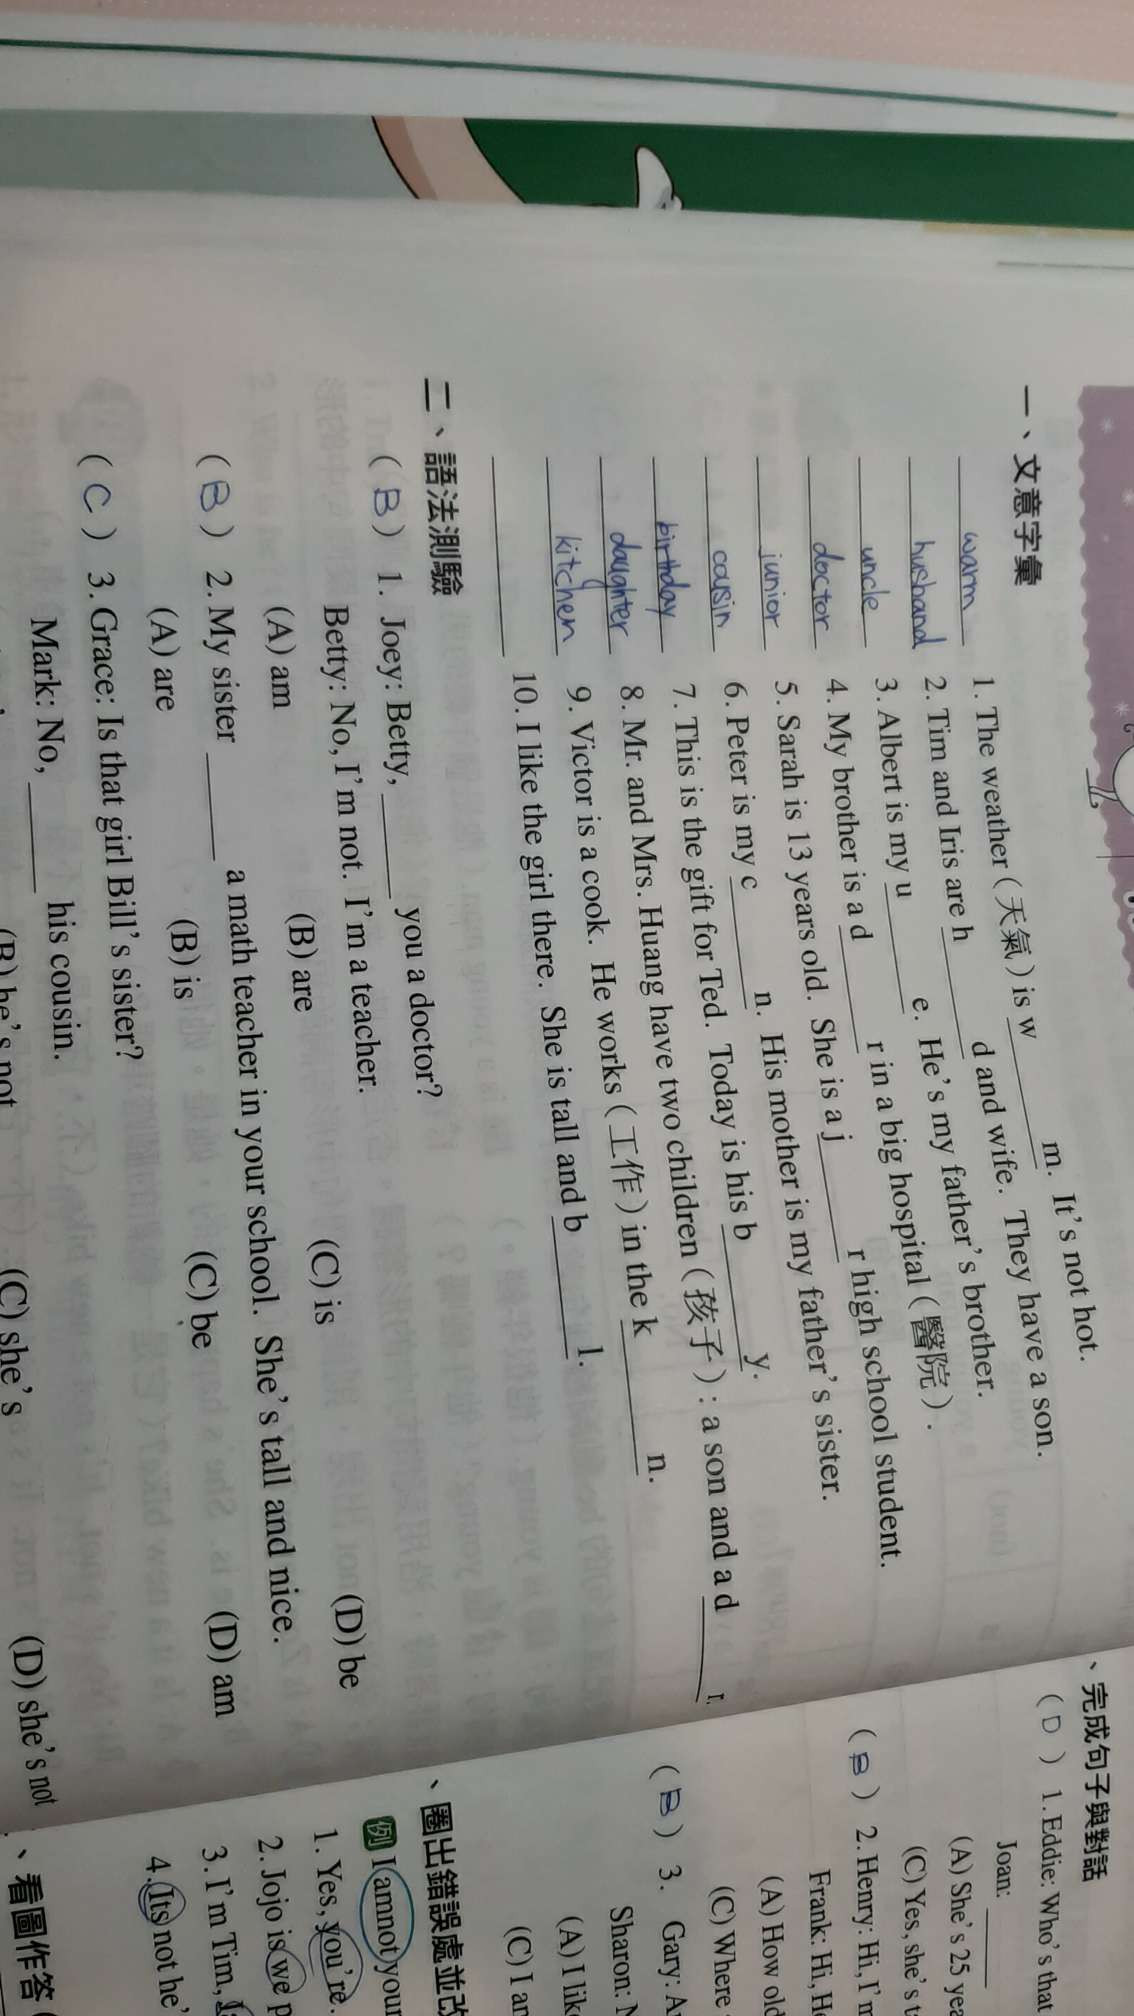 一、文意字彙
warm 1. The weather (天氣) is w m. It's not hot.
husband 2. Tim and Iris are h d and wife. They have a son.
uncle 3. Albert is my u e. He's my father's brother.
doctor 4. My brother is a d r in a big hospital (醫院).
junior 5. Sarah is 13 years old. She is a j r high school student.
cousin 6. Peter is my c n. His mother is my father's sister.
birthday 7. This is the gift for Ted. Today is his b y.
daughter 8. Mr. and Mrs. Huang have two children (孩子): a son and a d r
kitchen 9. Victor is a cook. He works (工作) in the k n.
10. I like the girl there. She is tall and b l.
二、語法測驗
(B) 1. Joey: Betty, you a doctor?
Betty: No, I'm not. I'm a teacher.
(A) am (B) are (C) is (D) be
(B) 2. My sister a math teacher in your school. She's tall and nice.
(A) are (B) is (C) be (D) am
(C) 3. Grace: Is that girl Bill's sister?
Mark: No, his cousin.
(B) he's not (C) she's (D) she's not
、完成句子與對話
(D) 1. Eddie: Who's
Joan:
(A) She's 25
(C) Yes, she's
(B) 2. Henry: Hi, I'm
Frank: Hi,
(A) How old
(C) Where
(B) 3. Gary:
Sharon:
(A) I
(C) I
、圈出錯誤處並
例 I amnot
1. Yes, you're.
2. Jojo is we
3. I'm Tim,
4. Its not
、看圖作答